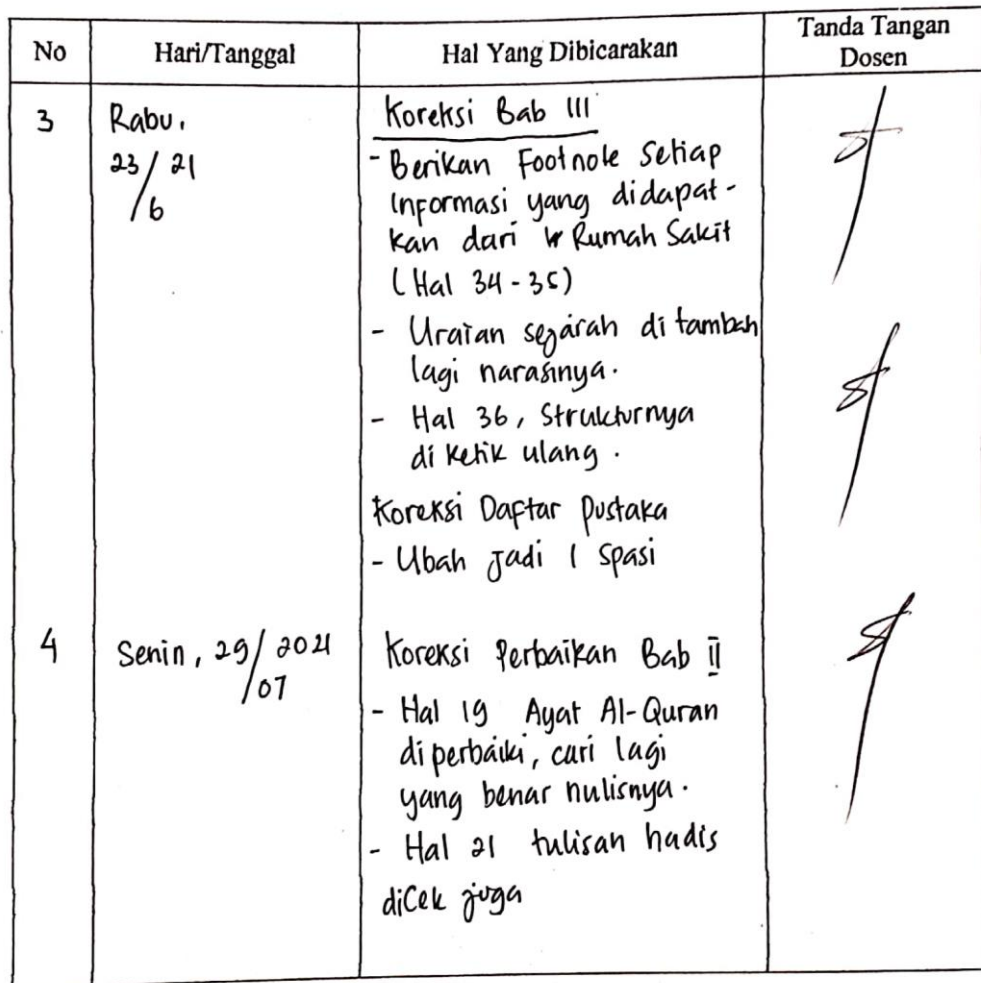 No Hari/Tanggal Hal Yang Dibicarakan Tanda Tangan Dosen
3 Rabu, 23/6 21 Koreksi Bab III
- Berikan Footnote Setiap
Informasi yang didapat-
kan dari Rumah Sakit
(Hal 34-35)
- Uraian sejarah di tambah
lagi narasinya.
- Hal 36, Strukturnya
di ketik ulang.
Koreksi Daftar Pustaka
- Ubah Jadi 1 spasi
4 Senin, 29/07 2021 Koreksi Perbaikan Bab II
- Hal 19 Ayat Al-Quran
di perbaiki, cari lagi
yang benar nulisnya.
- Hal 21 tulisan hadis
diCek juga